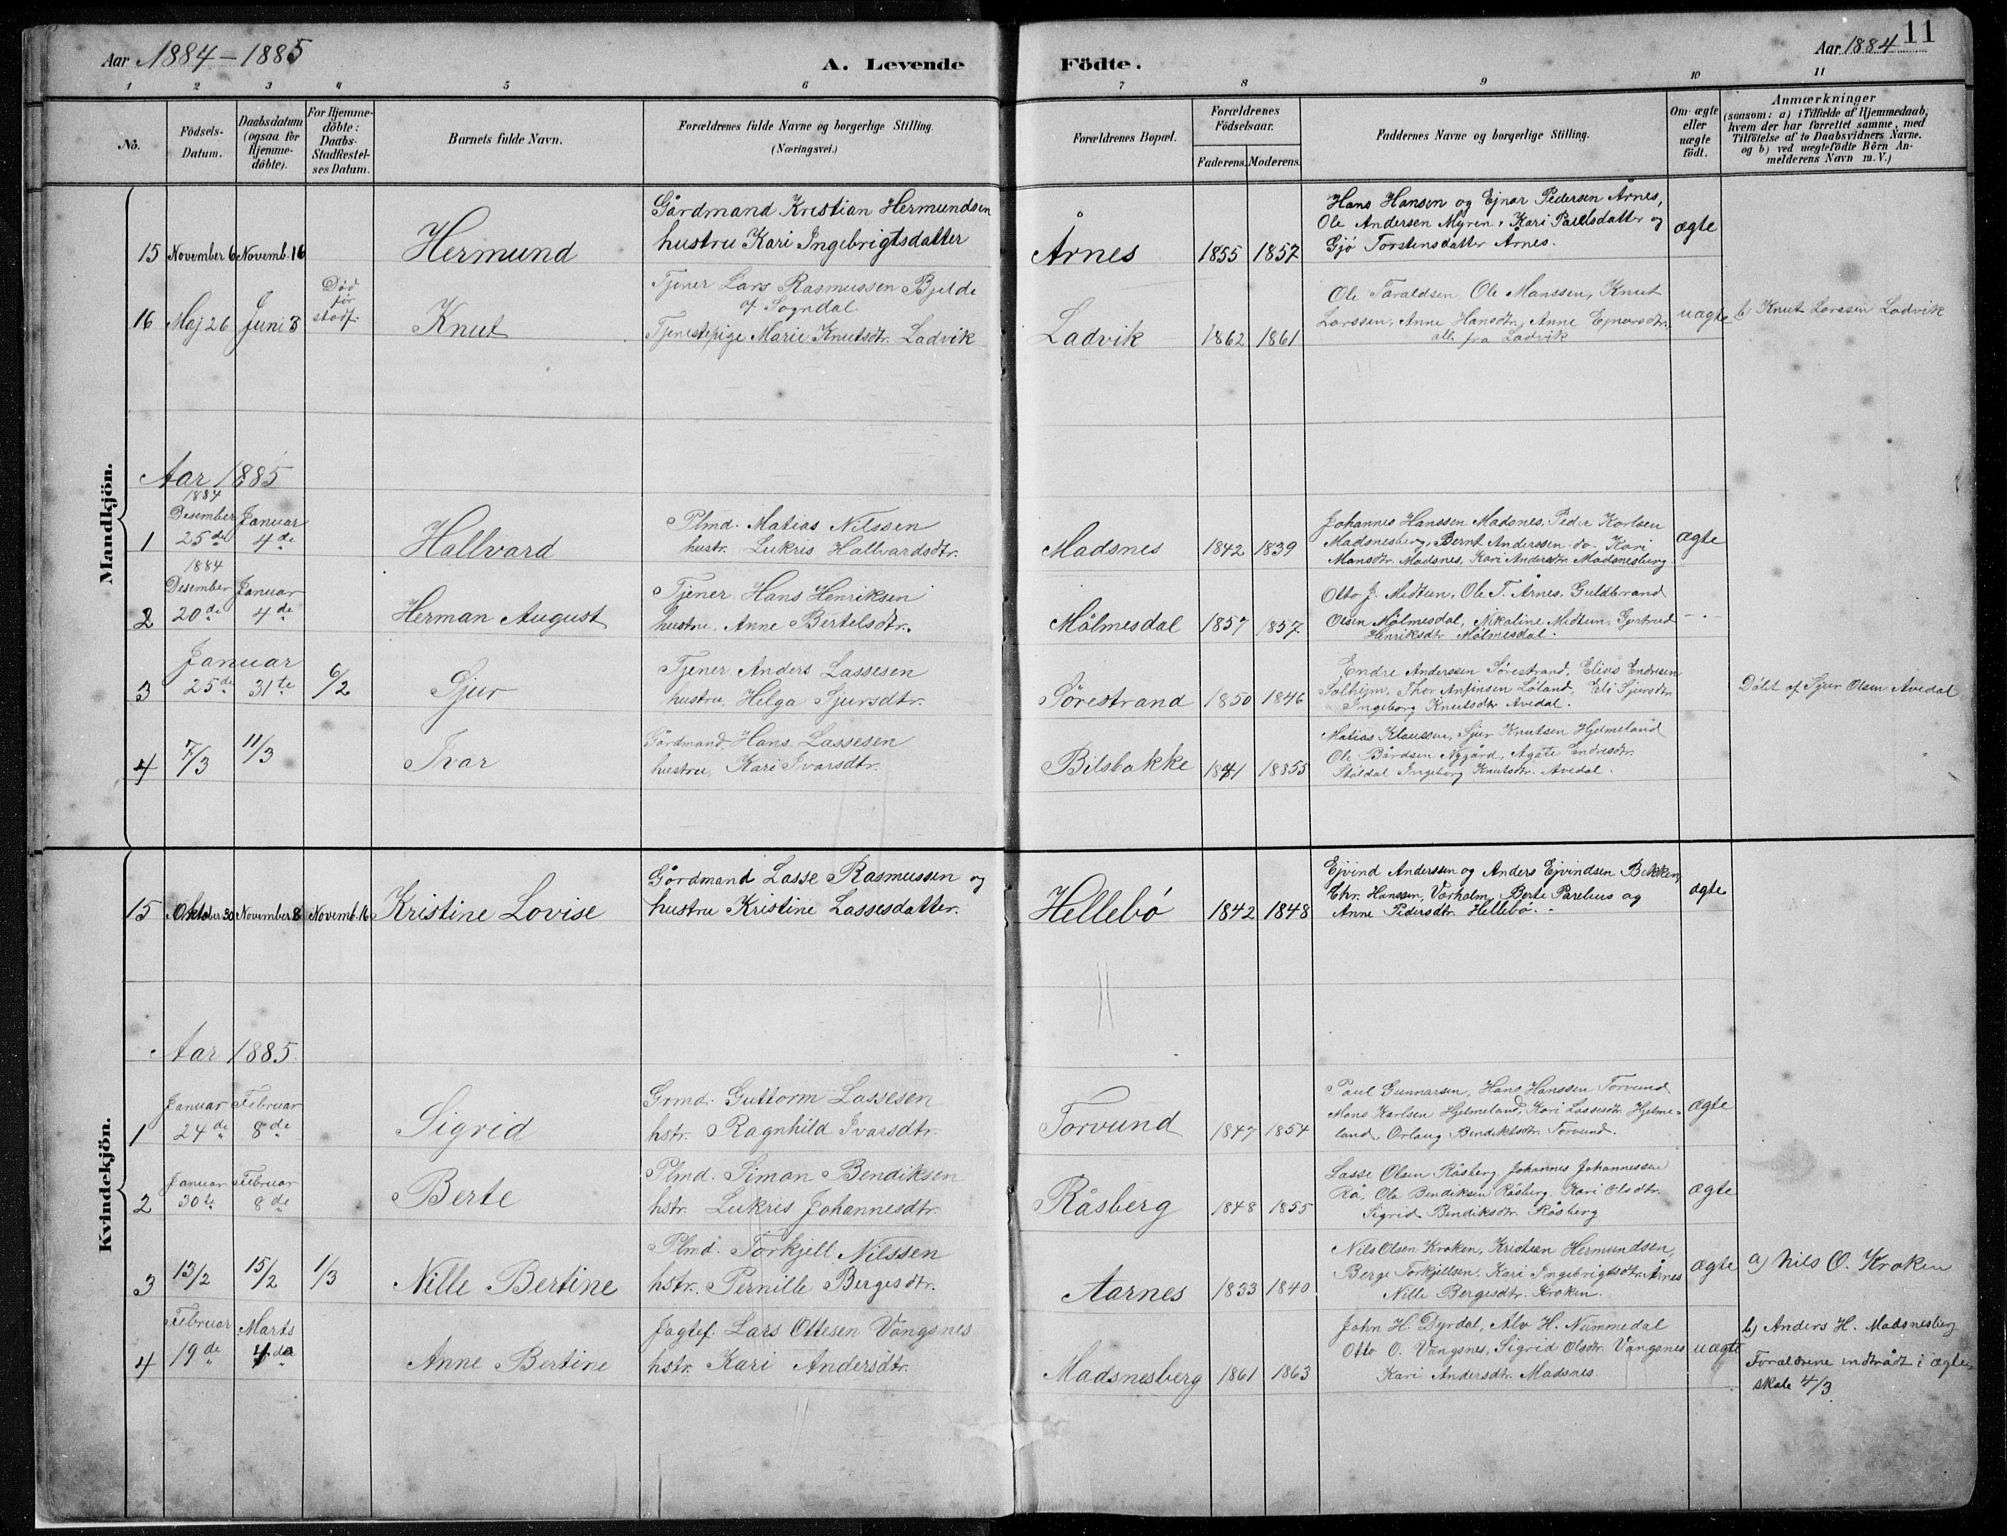 Aar 1884-1885
A. Levende Födte.
Aar 1884
11
1 2 3 4 5 6 7 8 9 10 11
No.
Födsels-
Datum.
Daabsdatum
(ogsaa for
Hjemme-
döbte).
For Hjemme-
döbte:
Daabs-
Stadfestel-
ses Datum.
Barnets fulde Navn.
Forældrenes fulde Navne og borgerlige Stilling.
(Næringsvei.)
Forældrenes Bopæl.
Forældrenes
Födselsaar.
Faderens. Moderens.
Faddernes Navne og borgerlige Stilling.
Om ægte
eller
uægte
födt.
Anmærkninger
(saasom: a) i Tilfælde af Hjemmedaab,
hvem der har forrettet samme, med
Tilföielse af to Daabsvidners Navne.
og b) ved uægtefödte Börn An-
melderens Navn m.V.)
Mandkjön.
15 November 6 Novemb. 16 Hermund
Gårdmand Kristian Hermundsen
hustru Kari Ingebrigtsdatter
Årnes 1855 1857
Hans Hansen og Ejnar Pedersen Årnes,
Ole Andersen Myren, Kari Paulsdatter og
Gjø Torstensdatter Årnes.
ægte
16 Maj 26 Juni 8
Død
før
stadf.
Knut
Tjener Lars Rasmussen Bjelde
af Sogndal
Tjenestepige Marie Knutsdtr. Ladvik
Ladvik 1862 1861
Ole Taraldsen, Ole Manssen, Knut
Larssen, Anne Hansdtr, Anne Ejnarsdtr.
alle fra Ladvik
uægte
b) Knut Larssen Ladvik
Aar 1885
1
1884
Desember
25de
Januar
4de
Hallvard
Plmd. Matias Nilssen
hustr. Lukris Hallvardsdtr.
Madsnes 1842 1839
Johannes Hanssen Madsnes, Peder Karlsen
Madsnesberg, Bernt Anderssen do. Kari
Mansdtr. Madsnes, Kari Andersdtr. Madsnesberg.
ægte
2
1884
Desember
20de
Januar
4de
Herman August
Tjener Hans Henriksen
hustru, Anne Bertelsdtr.
Målmesdal 1857 1857
Otto J. Midtun, Ole T. Årnes, Guldbrand
Olsen Målmesdal, Nikoline Midtun, Gjertrud
Henriksdtr. Målmesdal.
- -
3
Januar
25de 31te 6/2
Sjur
Tjener Anders Lassesen
hustru, Helga Sjursdtr.
Sørestrand 1850 1846
Endre Anderssen Sørestrand, Elias Endresen
Solhejm, Thor Anfinsen Løland, Eli Sjursdtr.
Ingeborg Knutsdtr. Avedal.
Døbt af Sjur Olsen Avedal
4 7/3 11/3 Ivar
Gårdmand, Hans Lassesen
hustru, Kari Ivarsdtr.
Bilsbakke 1841 18855
Matias Klaussen, Sjur Knutsen Hjelmeland
Ole Bårdsen Nygård, Agate Endresdtr.
Ståldal Ingeborg Knutsdtr. Avedal.
Kvindekjön.
15 Oktober 30 November 8 Novemb. 16 Kristine Lovise
Gårdmand Lasse Rasmussen og
hustru Kristine Lassesdatter.
Hellebø 1842 1848
Ejvind Anderssen og Anders Ejvindsen Bekken,
Chr. Hanssen, Varholm, Berte Parelius og
Anne Pedersdtr. Hellebø.
ægte
Aar 1885.
1
Januar
24de
Februar
8de
Sigrid
Grmd. Guttorm Lassesen
hstr. Ragnhild Ivarsdtr.
Torvund 1847 1854
Paul Gunnarsen, Hans Hanssen Torvund
Mons Karlsen Hjelmeland, Kari Lassesdtr. Hjelme-
land, Orlaug Bendiksdtr. Torvund.
ægte
2
Januar
30te
Februar
8de
Berte
Plmd. Simon Bendiksen
hstr. Lukris Johannesdtr.
Råsberg 1848 1855
Lasse Olsen Råsberg, Johannes Johannessen
Rå, Ole Bendiksen Råsberg. Kari Olsdtr.
Sigrid Bendiksdtr. Råsberg
ægte
3 13/2 15/2 1/3 Nille Bertine
Plmd. Torkjell Nilssen
hstr. Pernille Bergesdtr.
Aarnes 1833 1840
Nils Olsen Kroken, Kristian Hermundsen,
Berge Torkjellsen, Kari Ingebrigtsdtr. Årnes
Nille Bergesdtr. Kroken.
ægte
a) Nils O. Kroken
4
Februar
19de
Marts
4de
Anne Bertine
Jagtef. Lars Ottesen Vangsnes
hstr. Kari Andersdtr.
Madsnesberg 1861 1863
John H. Dyrdal, Alv H. Nummedal
Otto O. Vangsnes, Sigrid Olsdtr. Vangsnes
Kari Andersdtr. Madsnes.
uægte
b) Anders H. Madsnesberg
Forældrene indtrådt i ægte-
skab 4/3